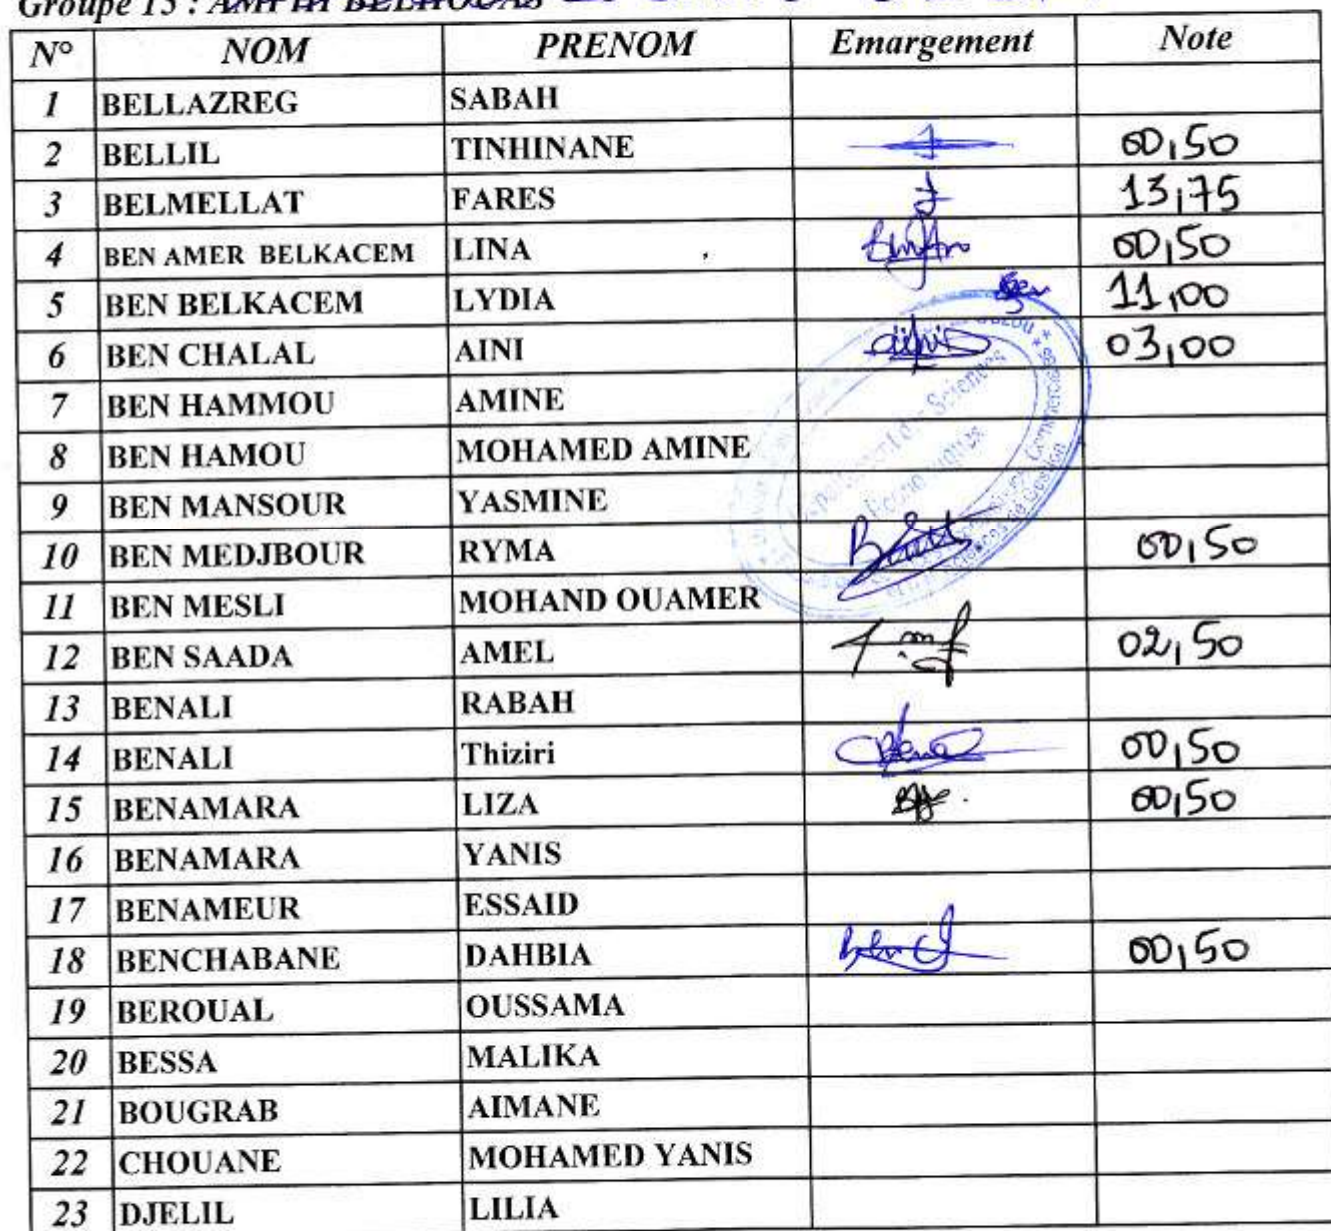 Groupe 15 : AMPHI BELHOUAS
N° NOM PRENOM Emargement Note
1 BELLAZREG SABAH
2 BELLIL TINHINANE 00,50
3 BELMELLAT FARES 13,75
4 BEN AMER BELKACEM LINA 00,50
5 BEN BELKACEM LYDIA 11,00
6 BEN CHALAL AINI 03,00
7 BEN HAMMOU AMINE
8 BEN HAMOU MOHAMED AMINE
9 BEN MANSOUR YASMINE
10 BEN MEDJBOUR RYMA 00,50
11 BEN MESLI MOHAND OUAMER
12 BEN SAADA AMEL 02,50
13 BENALI RABAH
14 BENALI Thiziri 00,50
15 BENAMARA LIZA 00,50
16 BENAMARA YANIS
17 BENAMEUR ESSAID
18 BENCHABANE DAHBIA 00,50
19 BEROUAL OUSSAMA
20 BESSA MALIKA
21 BOUGRAB AIMANE
22 CHOUANE MOHAMED YANIS
23 DJELIL LILIA